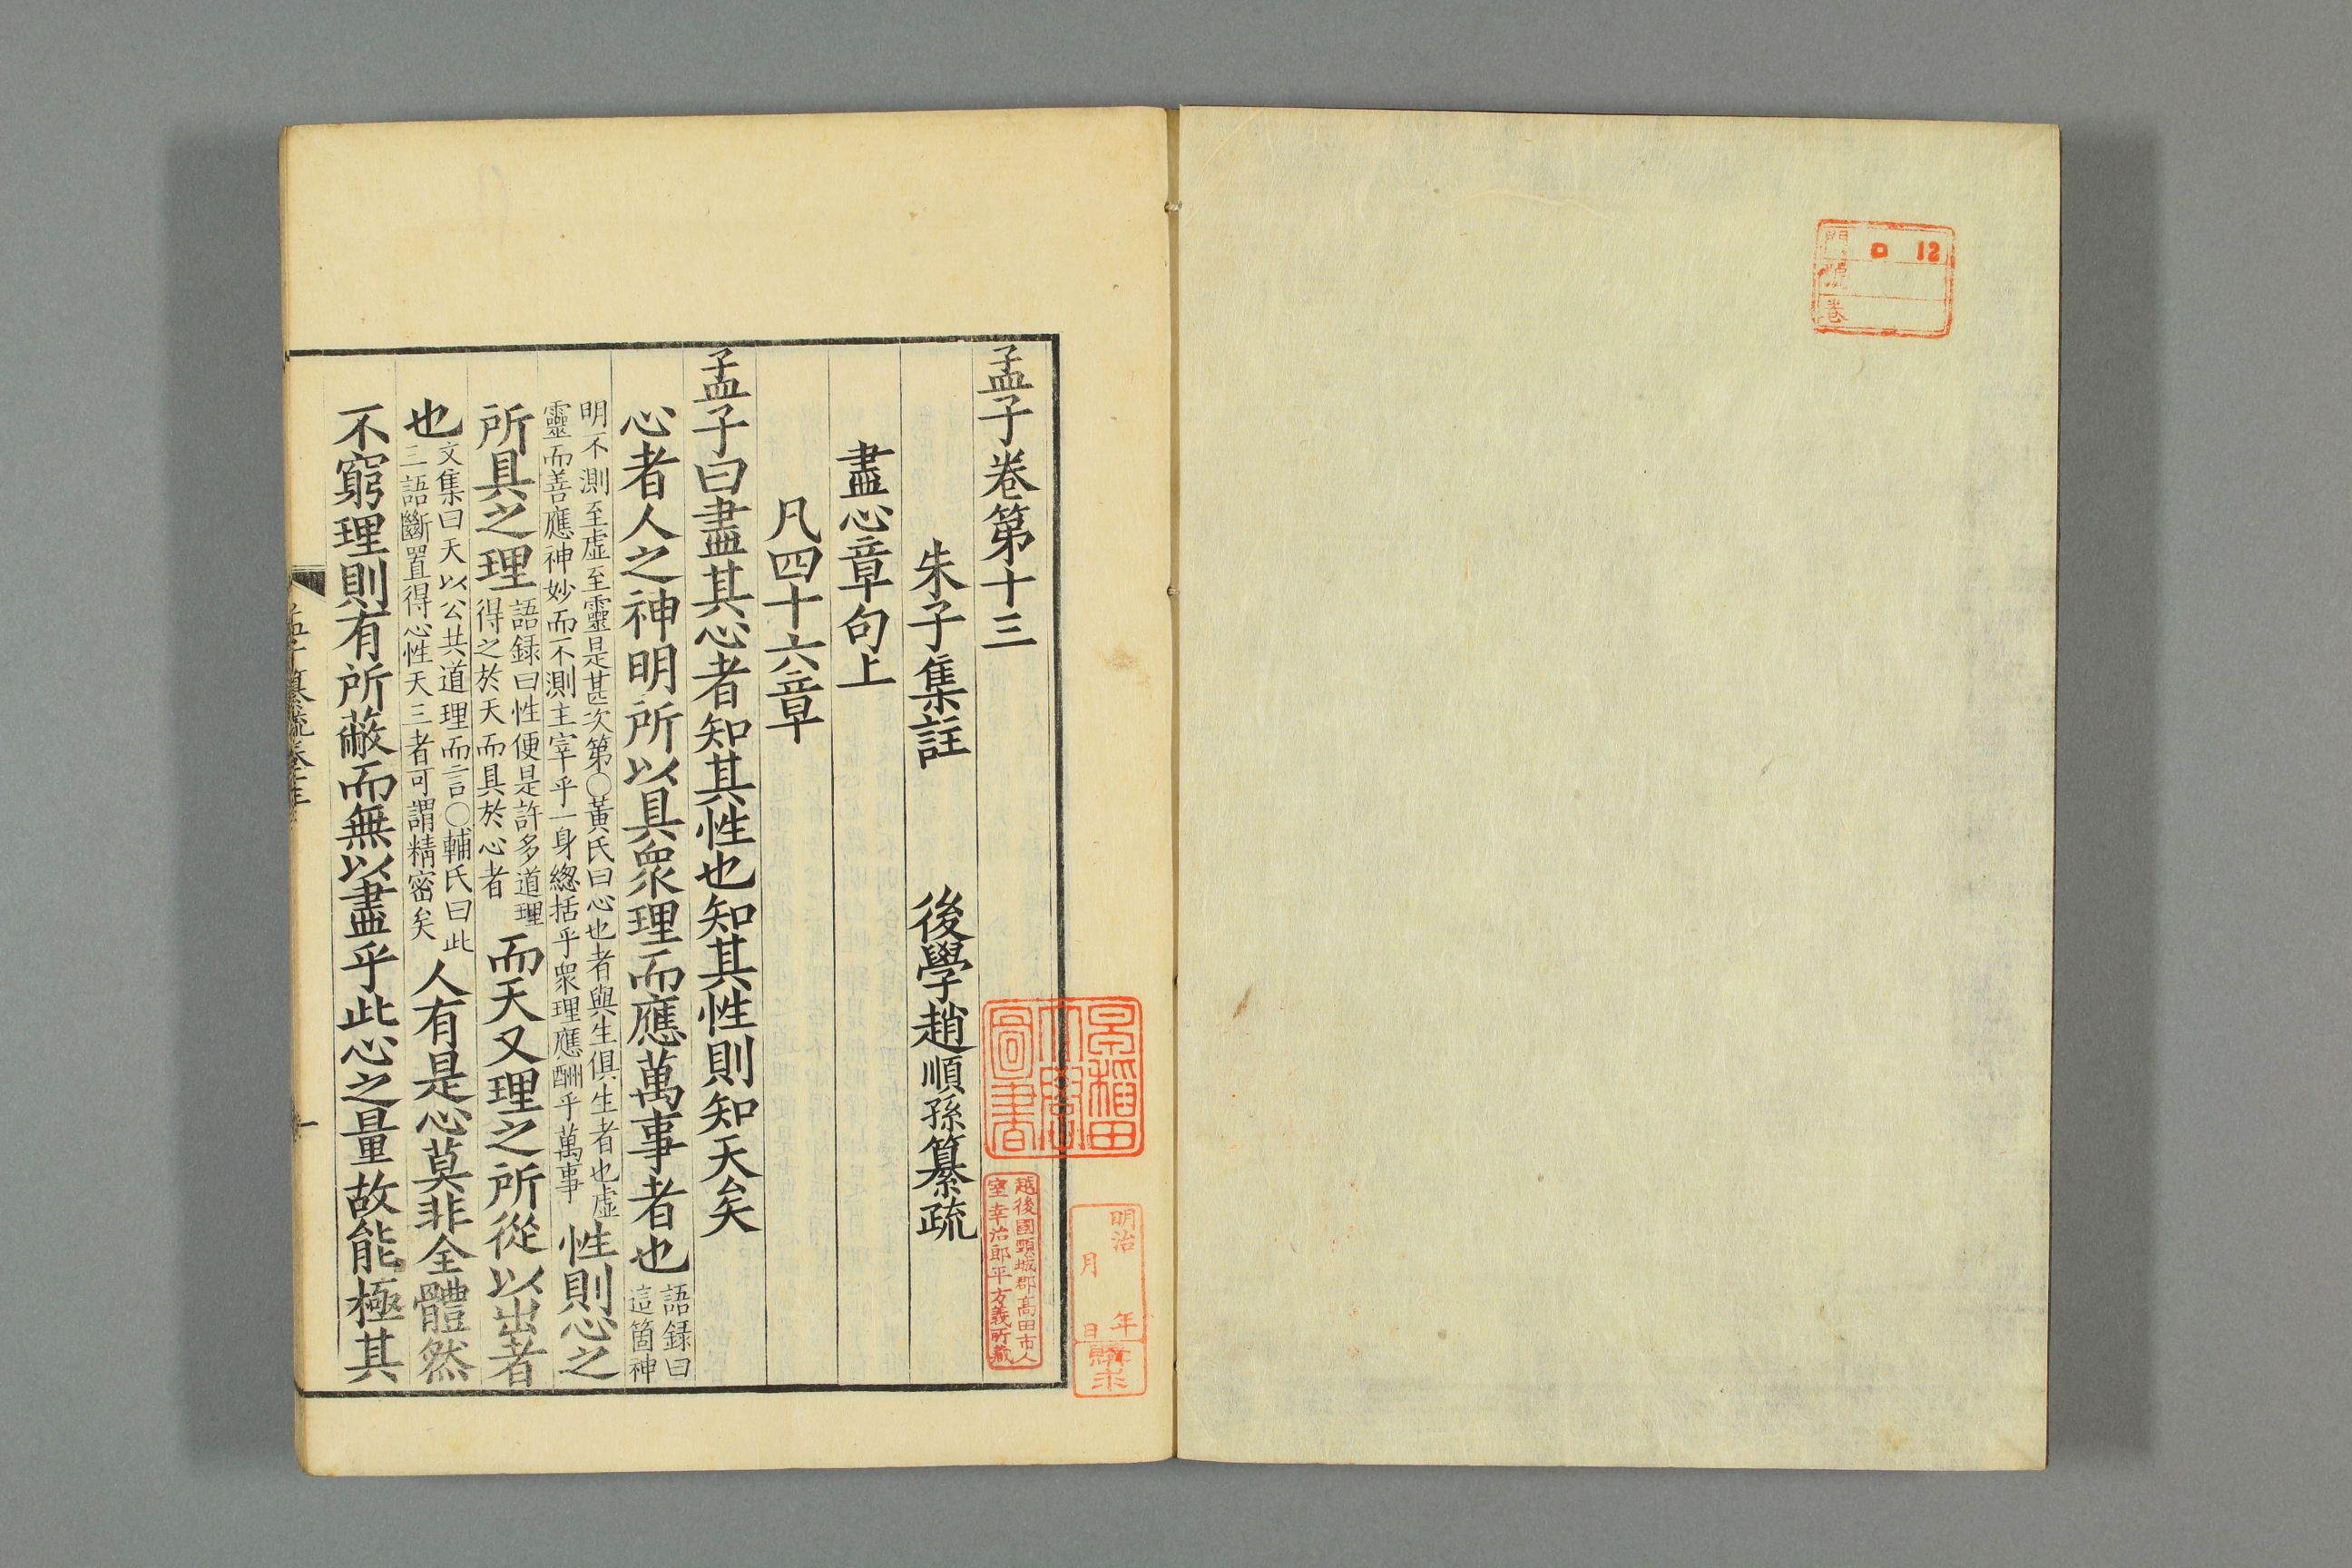 門 ロ 12
號
卷
孟子卷第十三
朱子集註 後學趙順孫纂疏
盡心章句上
凡四十六章
孟子曰盡其心者知其性也知其性則知天矣
心者人之神明所以具衆理而應萬事者也語録曰
這箇神
明不測至虛至靈是甚次第○黃氏曰心也者與生俱生者也虛
靈而善應神妙而不測主宰乎一身總括乎衆理應酬乎萬事
性則心之
所具之理
語録曰性便是許多道理
得之於天而具於心者
而天又理之所從以出者
也
文集曰天以公共道理而言○輔氏曰此
三語斷置得心性天三者可謂精密矣
人有是心莫非全體然
不窮理則有所蔽而無以盡乎此心之量故能極其
孟子纂疏卷十三
一
早稻田
大學
圖書
越後國頸城郡高田市人
室幸治郎平方義所藏
明治 年
月 日
購求